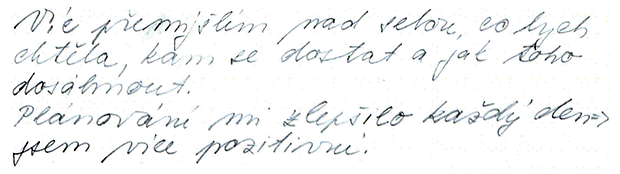 Víc přemýšlím nad sebou, co bych
chtěla, kam se dostat a jak toho
dosáhnout.
Plánování mi zlepšilo každý den=>
jsem více pozitivní.